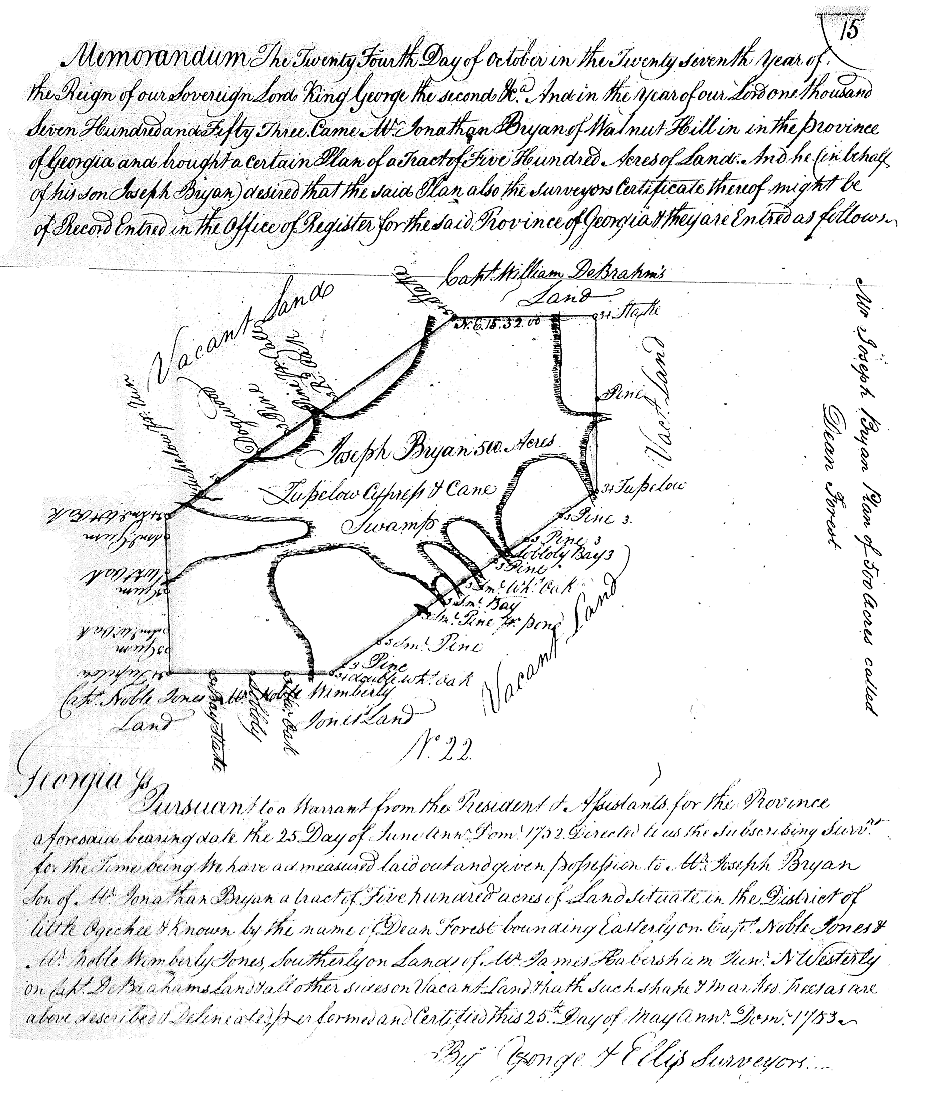 15
Memorandum The Twenty Fourth Day of October in the Twenty seventh Year of
the Reign of our Sovereign Lord King George the second &c.a And in the Year of our Lord one thousand
Seven Hundred and Fifty Three. Came Mr. Jonathan Bryan of Walnut Hill in in the Province
of Georgia and brought a certain Plan of a Tract of Five Hundred Acres of Land. And he (in behalf
of his son Joseph Bryan) desired that the said Plan also the surveyors Certificate thereof might be
of Record Entred in the Office of Register for the said Province of Georgia & they are Entred as follows
Capt. William DeBrahm's
Land
Stake
N.E. 15. 32. 00
Stake
Vacant Land
Dogwood
Pine
Pine
Vacant Land
Joseph Bryan 500 Acres
Tupelow Cypress & Cane
Swamp
Tupelow
Pine 3
Pine 3
Lobloly Bay 3
Pine
Sm. Wh. Oak
Sm. Bay
Sm. Pine
Sm. Pine
Pine
double Wh. Oak
Vacant Land
Gum
Gum
Tupelow
Capt. Noble Jones
Land
Mr. Noble Wimberly
Jones Land
Bay Stake
Lobloly
Oak
No. 22
Mr. Joseph Bryan Plan of 500 Acres called
Dean Forest
Georgia Ss
Pursuant to a Warrant from the President & Assistants, for the Province
aforesaid bearing date the 25 Day of June Ann. Dom. 1752 Directed to us the subscribing Survrs.
for the Time being We have admeasured laid out and given possession to Mr. Joseph Bryan
son of Mr. Jonathan Bryan a tract of Five hundred acres of Land situate in the District of
little Ogechee & known by the name of Dean Forest bounding Easterly on Capt. Noble Jones &
Mr. Noble Wimberly Jones, Southerly on Lands of Mr. James Habersham Junr. N Westerly
on Capt. DeBrahams Land & all other sides on Vacant Land hath such shape & marks. Trees as are
above described & Delineated, performed and Certified this 25th. Day of May Ann. Dom. 1753
By George & Ellis Surveyors